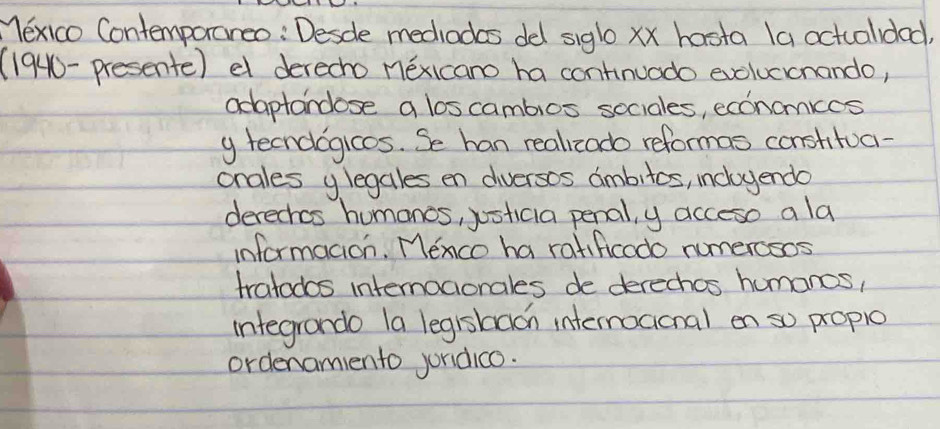 México Contemporaneo: Desde mediados del siglo XX hasta la actualidad,
(1940- presente) el derecho Méxicano ha continuado evolucionando,
adaptándose a los cambios sociales, ecónomicos
y tecnológicos. Se han realizado reformas constituci-
onales y legales en diversos ámbitos, incluyendo
derechos humanos, justicia penal, y acceso a la
información. México ha ratificado numerosos
tratados internacionales de derechos humanos,
integrando la legislación internacional en su propio
ordenamiento juridico.